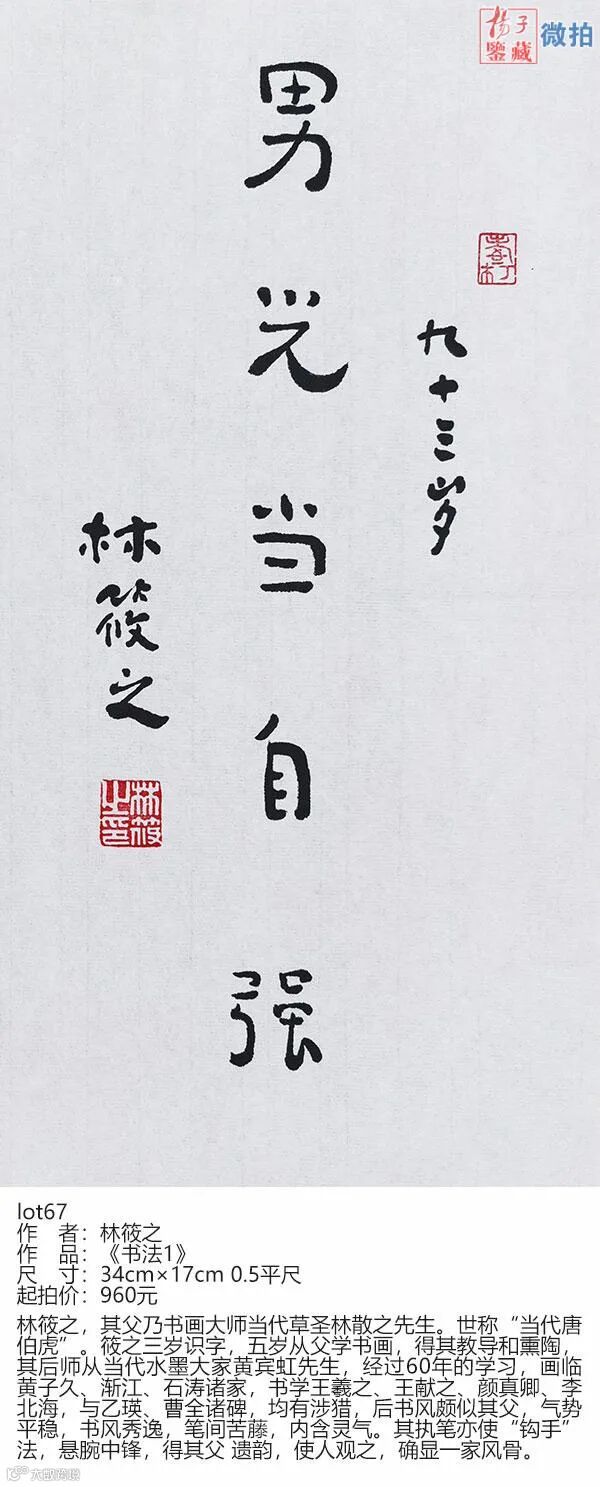 揚子
鑒藏
微拍
男光当自强
九十三岁
林筱之
林筱之印
lot67
作 者：林筱之
作 品：《书法1》
尺 寸：34cm×17cm 0.5平尺
起拍价：960元
林筱之，其父乃书画大师当代草圣林散之先生。世称“当代唐
伯虎”。筱之三岁识字，五岁从父学书画，得其教导和熏陶，
其后师从当代水墨大家黄宾虹先生，经过60年的学习，画临
黄子久、渐江、石涛诸家，书学王羲之、王献之，颜真卿、李
北海，与乙瑛、曹全诸碑，均有涉猎，后书风颇似其父，气势
平稳，书风秀逸，笔间苦藤，内含灵气。其执笔亦使“钩手”
法，悬腕中锋，得其父 遗韵，使人观之，确显一家风骨。